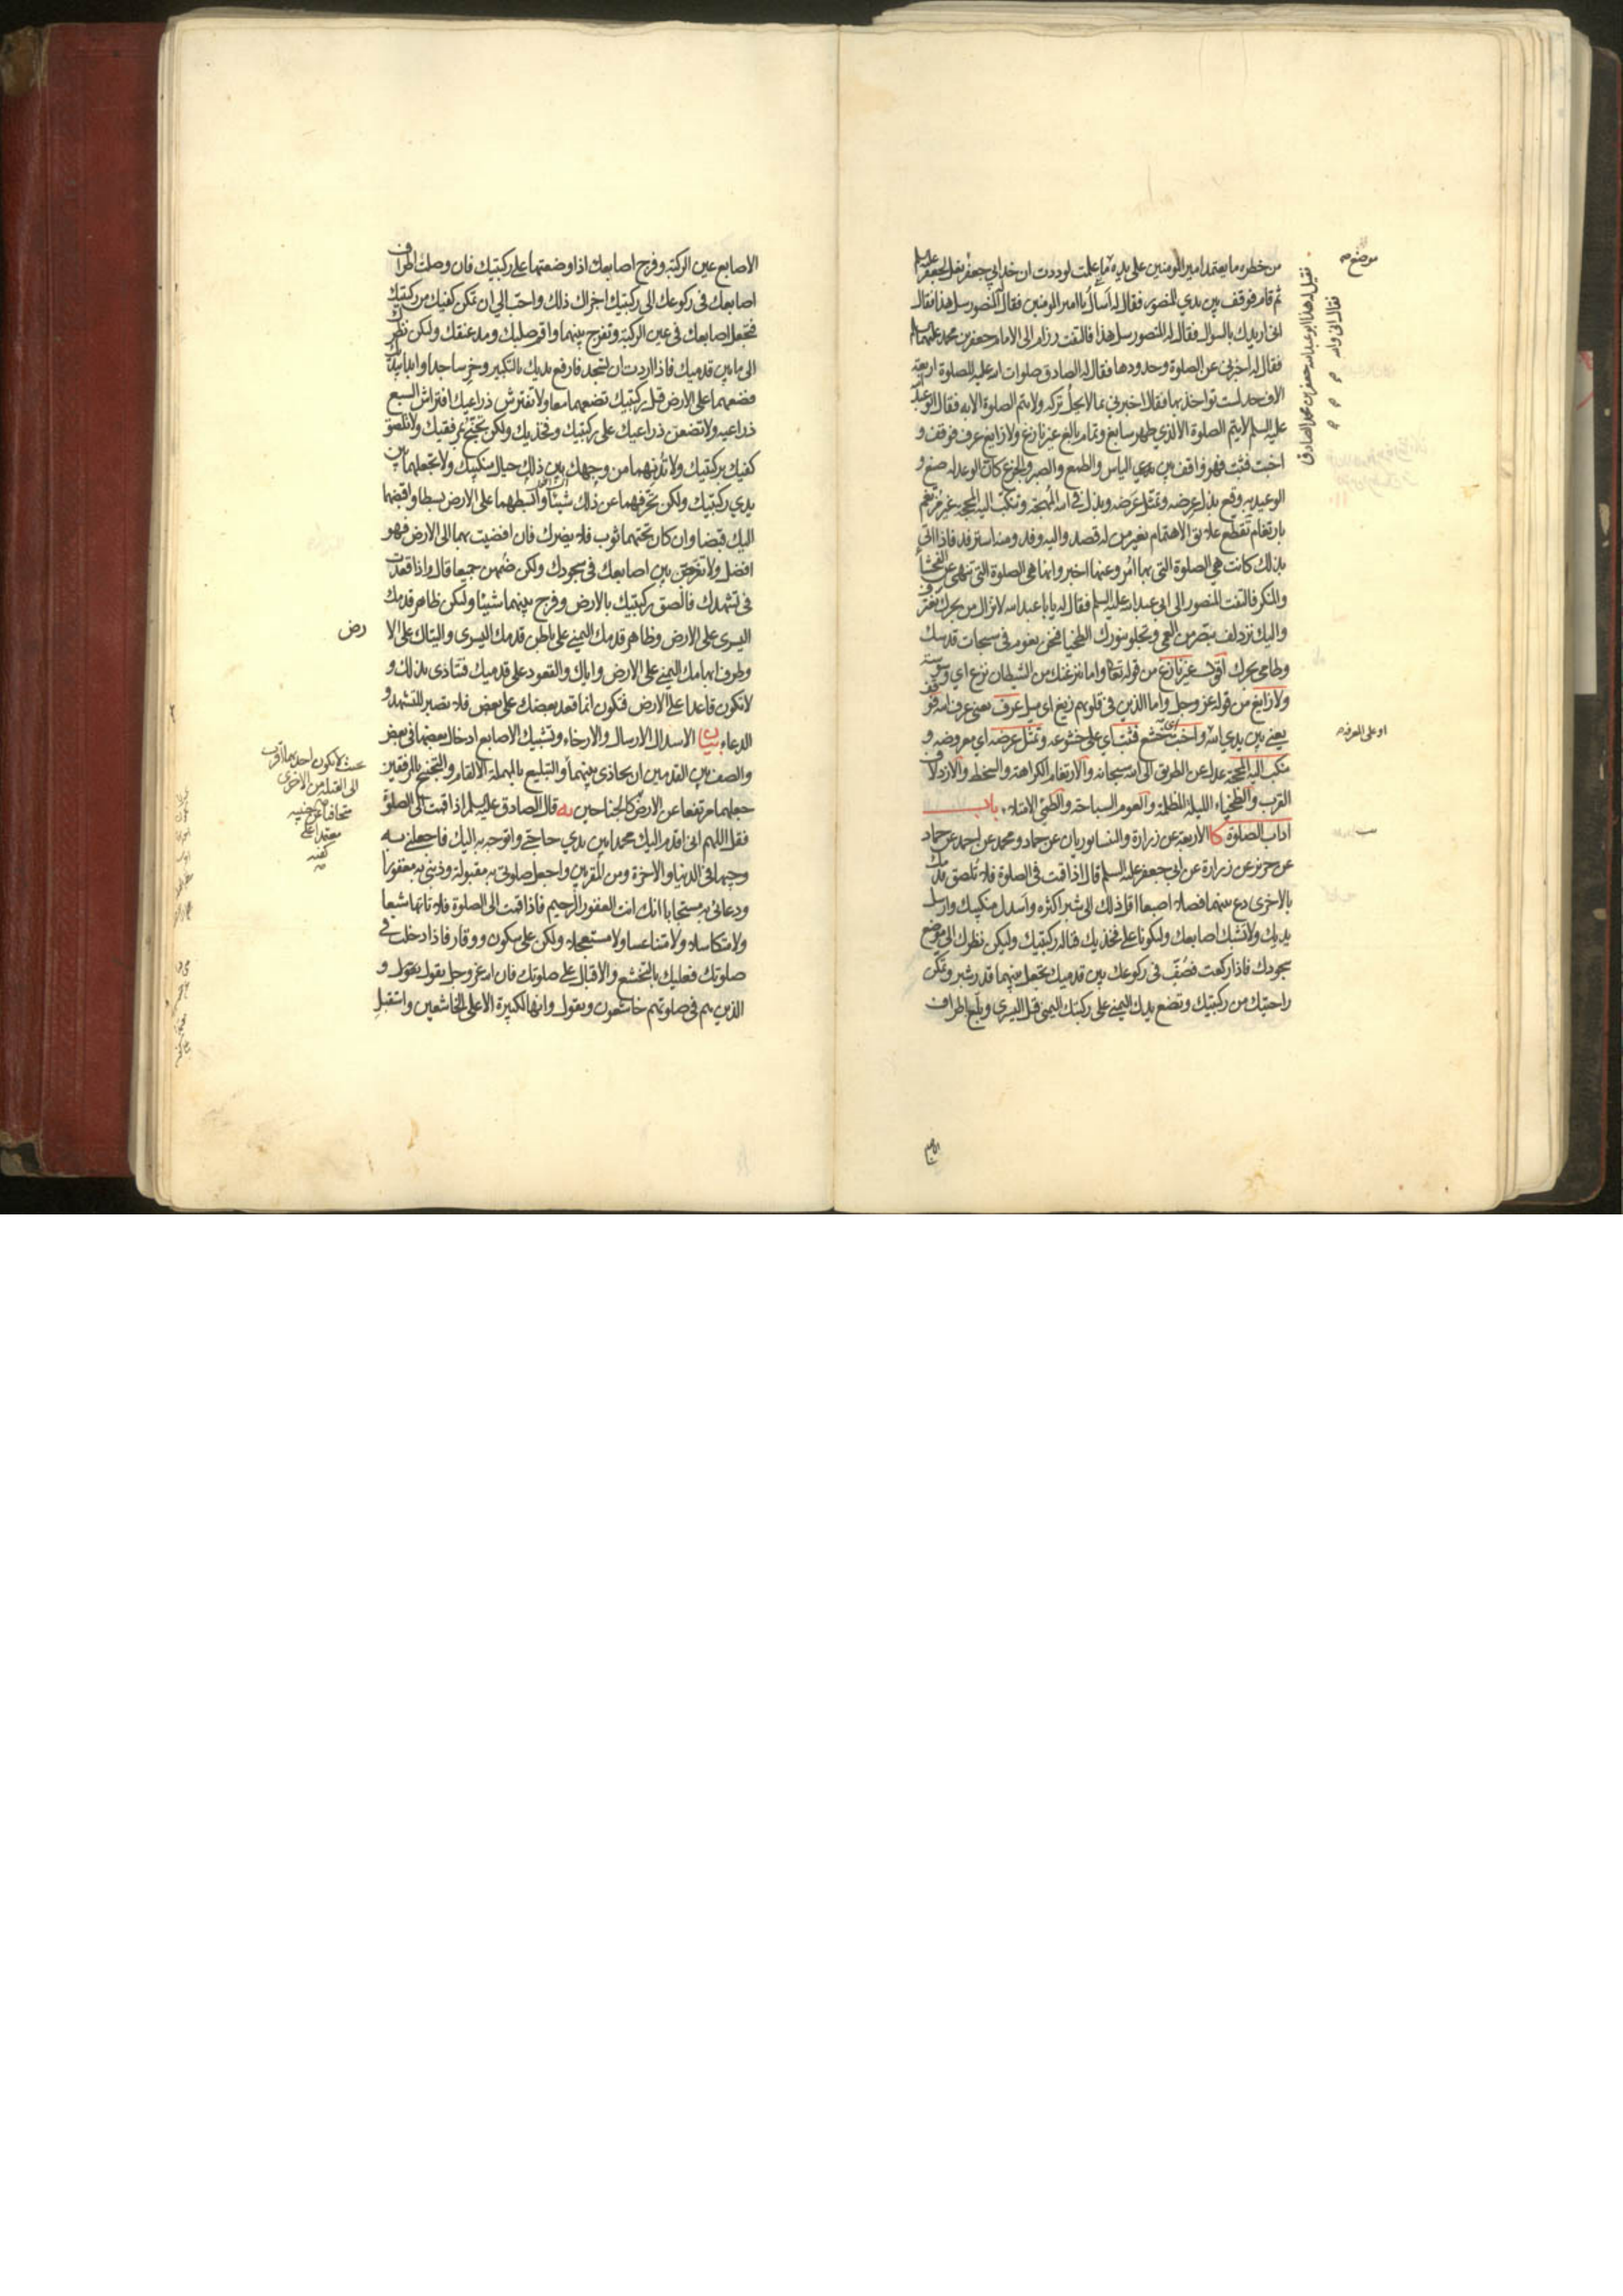 من خطره ما يعتمد امير المومنين على يديه ما علمت لوددت ان خد ابي جعفر نعل لجعفر عليه السلم
ثم قام فوقف بين يدي المنصور فقال له اسال يا امير المومنين فقال المنصور سل هذا فقال
اني اريدك بالسوال فقال له المنصور سل هذا فالتفت رزام الى الامام جعفر بن محمد عليهما السلم
فقال له اخبرني عن الصلوة وحدودها فقال له الصادق صلوات الله عليه للصلوة اربعة
الاف حد لست تواخذ بها فقال اخبرني بما لا يحل تركه ولا يتم الصلوة الا به فقال ابو عبد الله
عليه السلم لا يتم الصلوة الا لذي طهر سابغ وتمام بالغ غير نازغ ولا زايغ عرف فوقف و
اخبت فثبت فهو واقف بين اليأس والطمع والصبر والجزع كان الوعد له صنع و
الوعيد به وقع بذل عرضه وتمثل غرضه وبذل في الله المهجة وتنكب اليه المحجة غير مرتغم
بارتغام تقطع علايق الاهتمام بغير من له قصد واليه وفد ومنه استرفد فاذا اتى
بذلك كانت هي الصلوة التي بها امر وعنها اخبر وانها هي الصلوة التي تنهى عن الفحشاء
والمنكر فالتفت المنصور الى ابي عبد الله عليه السلم فقال له يا با عبد الله لا نزال من بحرك نغترف
واليك نزدلف تبصر من العمى وتجلو بنورك الطخياء فنحن نعوم في سبحات قدسك
وطامي بحرك اقول غير نازغ من قوله تعالى واما ينزغنك من الشيطان نزغ اي وسوسة
ولا زايغ من قوله عز وجل واما الذين في قلوبهم زيغ اي ميل عرف يعني عرف الله فوقف
يعني بين يدي الله واخبت اي خشع فثبت اي على خشوعه وتمثل عرضه اي معروضه و
تنكب اليه المحجة عدل عن الطريق الى الله سبحانه والارتغام الكراهة والسخط والازدلاف
القرب والطخياء الليلة المظلمة والعوم السباحة والطمي الامتلاء باب
اداب الصلوة كا الاربعة عن زرارة والنيسابوريان عن حماد ومحمد عن احمد عن حماد
عن حريز عن زرارة عن ابي جعفر عليه السلم قال اذا قمت في الصلوة فلا تلصق قدمك
بالاخرى دع بينهما فصلا اصبعا اقل ذلك الى شبر اكثره واسدل منكبيك وارسل
يديك ولا تشبك اصابعك وليكونا على فخذيك قبالة ركبتيك وليكن نظرك الى موضع
سجودك فاذا ركعت فصف في ركوعك بين قدميك تجعل بينهما قدر شبر وتمكن
راحتيك من ركبتيك وتضع يدك اليمنى على ركبتك اليمنى قبل اليسرى وبلع اطراف
موضع
فقيل له هذا ابو عبد الله جعفر بن محمد الصادق
فقال اني واه
او على المعرفة
الاصابع عين الركبة وفرج اصابعك اذا وضعتها على ركبتيك فان وصلت اطراف
اصابعك في ركوعك الى ركبتيك اجزاك ذلك واحب الي ان تمكن كفيك من ركبتيك
فتجعل اصابعك في عين الركبة وتفرج بينهما واقم صلبك ومد عنقك وليكن نظرك
الى ما بين قدميك فاذا اردت ان تسجد فارفع يديك بالتكبير وخر ساجدا وابدا بيديك
فضعهما على الارض قبل ركبتيك تضعهما معا ولا تفترش ذراعيك افتراش السبع
ذراعيه ولا تضعن ذراعيك على ركبتيك وفخذيك ولكن تجنح بمرفقيك ولا تلصق
كفيك بركبتيك ولا تدنهما من وجهك بين ذلك حيال منكبيك ولا تجعلهما بين
يدي ركبتيك ولكن تحرفهما عن ذلك شيئا وابسطهما على الارض بسطا واقبضهما
اليك قبضا وان كان تحتهما ثوب فلا يضرك فان افضيت بهما الى الارض فهو
افضل ولا تفرجن بين اصابعك في سجودك ولكن ضمهن جميعا قال واذا قعدت
في تشهدك فالصق ركبتيك بالارض وفرج بينهما شيئا وليكن ظاهر قدمك
اليسرى على الارض وظاهر قدمك اليمنى على باطن قدمك اليسرى واليتاك على الا
وطرف ابهامك اليمنى على الارض واياك والقعود على قدميك فتتاذى بذلك و
لا تكون قاعدا على الارض فتكون انما قعد بعضك على بعض فلا تصبر للتشهد و
الدعاء بيان الاسدال الارسال والارخاء وتشبيك الاصابع ادخال بعضها في بعض
والصف بين القدمين ان يحاذي بينهما والتبليع بالمهملة الالقام والتجنيح بالمرفقين
جعلهما مرتفعا عن الارض كالجناحين يه قال الصادق عليه السلم اذا قمت الى الصلوة
فقل اللهم اني اقدم اليك محمدا بين يدي حاجتي واتوجه به اليك فاجعلني به
وجيها في الدنيا والاخرة ومن المقربين واجعل صلوتي به مقبولة وذنبي به مغفورا
ودعائي به مستجابا انك انت الغفور الرحيم فاذا قمت الى الصلوة فلا تاتها شبعا
ولا متكاسلا ولا متناعسا ولا مستعجلا ولكن على سكون ووقار فاذا دخلت في
صلوتك فعليك بالتخشع والاقبال على صلوتك فان الله عز وجل يقول و
الذين هم في صلوتهم خاشعون ويقول وانها لكبيرة الا على الخاشعين واستقبل
رض
بحيث لا يكون احديهما اقرب
الى القبلة من الاخرى
متجافيا عن جنبيه
معتمدا على
كفيه